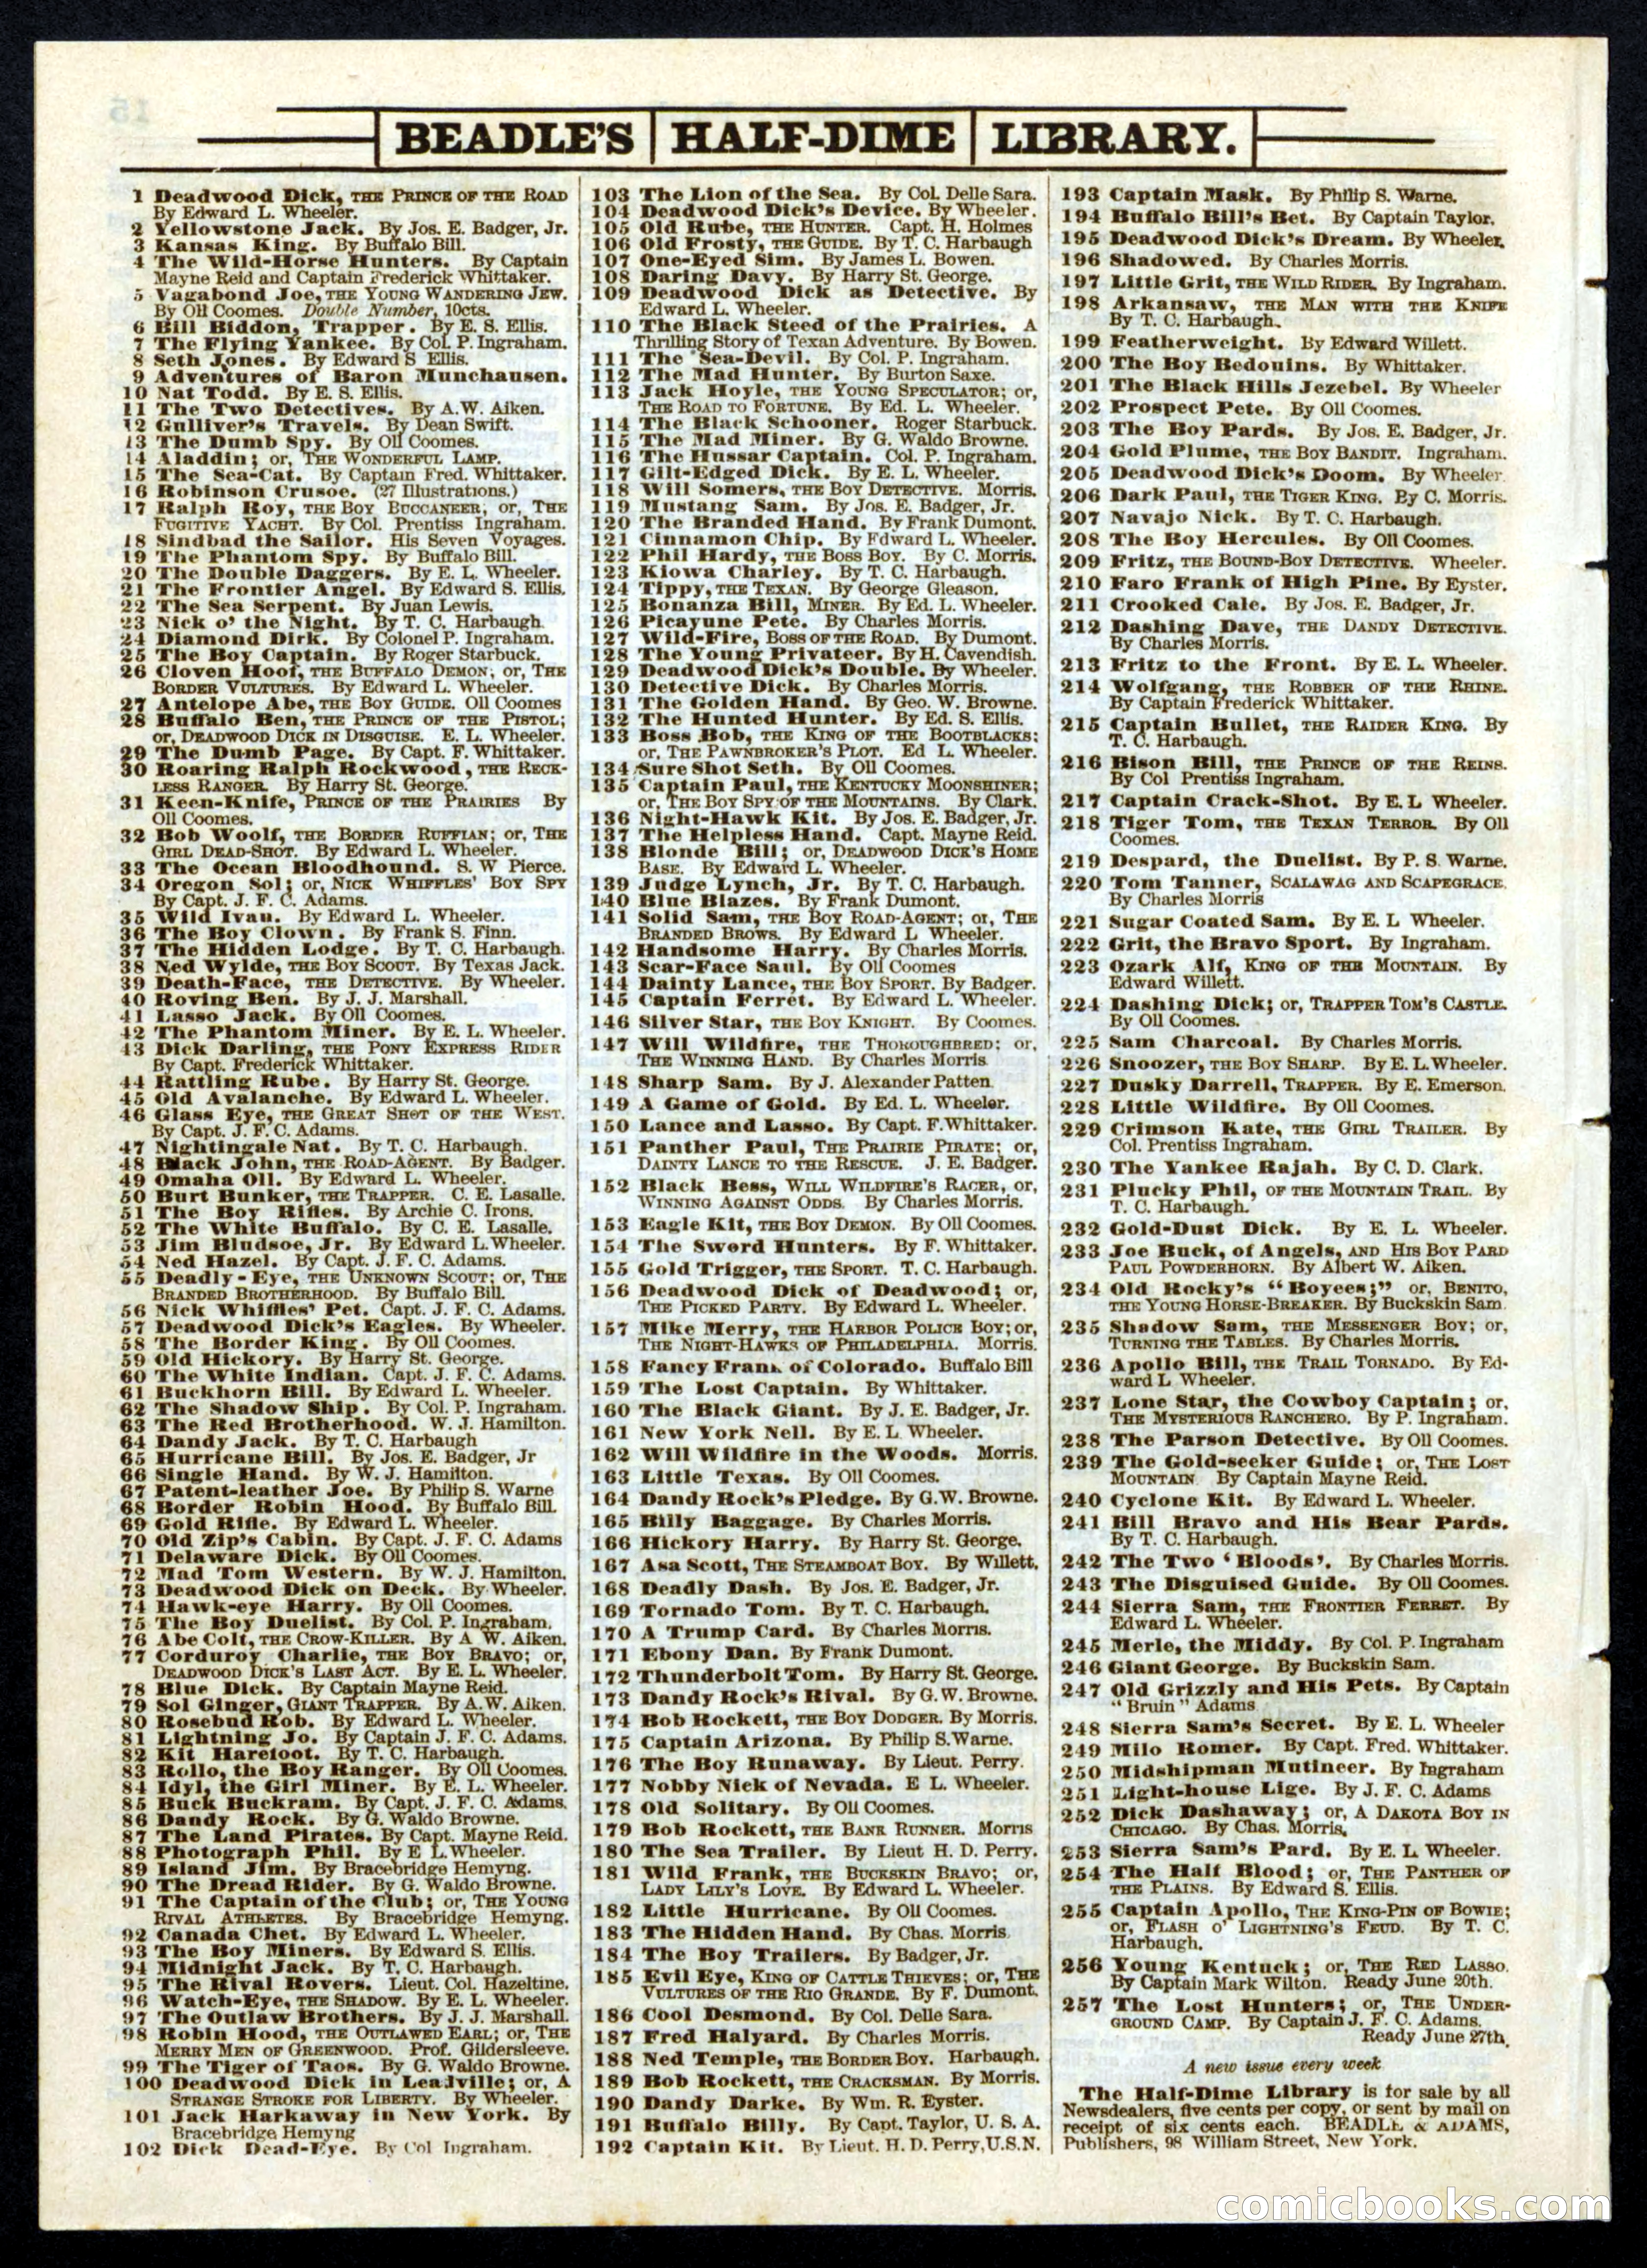 BEADLE'S HALF-DIME LIBRARY.
1 Deadwood Dick, THE PRINCE OF THE ROAD
By Edward L. Wheeler.
2 Yellowstone Jack. By Jos. E. Badger, Jr.
3 Kansas King. By Buffalo Bill.
4 The Wild-Horse Hunters. By Captain
Mayne Reid and Captain Frederick Whittaker.
5 Vagabond Joe, THE YOUNG WANDERING JEW.
By Oll Coomes. Double Number, 10cts.
6 Bill Biddon, Trapper. By E. S. Ellis.
7 The Flying Yankee. By Col. P. Ingraham.
8 Seth Jones. By Edward S Ellis.
9 Adventures of Baron Munchausen.
10 Nat Todd. By E. S. Ellis.
11 The Two Detectives. By A.W. Aiken.
12 Gulliver's Travels. By Dean Swift.
13 The Dumb Spy. By Oll Coomes.
14 Aladdin; or, THE WONDERFUL LAMP.
15 The Sea-Cat. By Captain Fred. Whittaker.
16 Robinson Crusoe. (27 Illustrations.)
17 Ralph Roy, THE BOY BUCCANEER; or, THE
FUGITIVE YACHT. By Col. Prentiss Ingraham.
18 Sindbad the Sailor. His Seven Voyages.
19 The Phantom Spy. By Buffalo Bill.
20 The Double Daggers. By E. L. Wheeler.
21 The Frontier Angel. By Edward S. Ellis.
22 The Sea Serpent. By Juan Lewis.
23 Nick o' the Night. By T. C. Harbaugh.
24 Diamond Dirk. By Colonel P. Ingraham.
25 The Boy Captain. By Roger Starbuck.
26 Cloven Hoof, THE BUFFALO DEMON; or, THE
BORDER VULTURES. By Edward L. Wheeler.
27 Antelope Abe, THE BOY GUIDE. Oll Coomes
28 Buffalo Ben, THE PRINCE OF THE PISTOL;
or, DEADWOOD DICK IN DISGUISE. E. L. Wheeler.
29 The Dumb Page. By Capt. F. Whittaker.
30 Roaring Ralph Rockwood, THE RECK-
LESS RANGER. By Harry St. George.
31 Keen-Knife, PRINCE OF THE PRAIRIES By
Oll Coomes.
32 Bob Woolf, THE BORDER RUFFIAN; or, THE
GIRL DEAD-SHOT. By Edward L. Wheeler.
33 The Ocean Bloodhound. S. W Pierce.
34 Oregon Sol; or, NICK WHIFFLES' BOY SPY
By Capt. J. F. C. Adams.
35 Wild Ivan. By Edward L. Wheeler.
36 The Boy Clown. By Frank S. Finn.
37 The Hidden Lodge. By T. C. Harbaugh.
38 Ned Wylde, THE BOY SCOUT. By Texas Jack.
39 Death-Face, THE DETECTIVE. By Wheeler.
40 Roving Ben. By J. J. Marshall.
41 Lasso Jack. By Oll Coomes.
42 The Phantom Miner. By E. L. Wheeler.
43 Dick Darling, THE PONY EXPRESS RIDER
By Capt. Frederick Whittaker.
44 Rattling Rube. By Harry St. George.
45 Old Avalanche. By Edward L. Wheeler.
46 Glass Eye, THE GREAT SHOT OF THE WEST.
By Capt. J. F. C. Adams.
47 Nightingale Nat. By T. C. Harbaugh.
48 Black John, THE ROAD-AGENT. By Badger.
49 Omaha Oll. By Edward L. Wheeler.
50 Burt Bunker, THE TRAPPER. C. E. Lasalle.
51 The Boy Rifles. By Archie C. Irons.
52 The White Buffalo. By C. E. Lasalle.
53 Jim Bludsoe, Jr. By Edward L. Wheeler.
54 Ned Hazel. By Capt. J. F. C. Adams.
55 Deadly-Eye, THE UNKNOWN SCOUT; or, THE
BRANDED BROTHERHOOD. By Buffalo Bill.
56 Nick Whiffles' Pet. Capt. J. F. C. Adams.
57 Deadwood Dick's Eagles. By Wheeler.
58 The Border King. By Oll Coomes.
59 Old Hickory. By Harry St. George.
60 The White Indian. Capt. J. F. C. Adams.
61 Buckhorn Bill. By Edward L. Wheeler.
62 The Shadow Ship. By Col. P. Ingraham.
63 The Red Brotherhood. W. J. Hamilton.
64 Dandy Jack. By T. C. Harbaugh
65 Hurricane Bill. By Jos. E. Badger, Jr
66 Single Hand. By W. J. Hamilton.
67 Patent-leather Joe. By Philip S. Warne
68 Border Robin Hood. By Buffalo Bill.
69 Gold Rifle. By Edward L. Wheeler.
70 Old Zip's Cabin. By Capt. J. F. C. Adams
71 Delaware Dick. By Oll Coomes.
72 Mad Tom Western. By W. J. Hamilton.
73 Deadwood Dick on Deck. By Wheeler.
74 Hawk-eye Harry. By Oll Coomes.
75 The Boy Duelist. By Col. P. Ingraham.
76 Abe Colt, THE CROW-KILLER. By A W. Aiken.
77 Corduroy Charlie, THE BOY BRAVO; or,
DEADWOOD DICK'S LAST ACT. By E. L. Wheeler.
78 Blue Dick. By Captain Mayne Reid.
79 Sol Ginger, GIANT TRAPPER. By A.W. Aiken.
80 Rosebud Rob. By Edward L. Wheeler.
81 Lightning Jo. By Captain J. F. C. Adams.
82 Kit Harefoot. By T. C. Harbaugh.
83 Rollo, the Boy Ranger. By Oll Coomes.
84 Idyl, the Girl Miner. By E. L. Wheeler.
85 Buck Buckram. By Capt. J. F. C. Adams.
86 Dandy Rock. By G. Waldo Browne.
87 The Land Pirates. By Capt. Mayne Reid.
88 Photograph Phil. By E L. Wheeler.
89 Island Jim. By Bracebridge Hemyng.
90 The Dread Rider. By G. Waldo Browne.
91 The Captain of the Club; or, THE YOUNG
RIVAL ATHLETES. By Bracebridge Hemyng.
92 Canada Chet. By Edward L. Wheeler.
93 The Boy Miners. By Edward S. Ellis.
94 Midnight Jack. By T. C. Harbaugh.
95 The Rival Rovers. Lieut. Col. Hazeltine.
96 Watch-Eye, THE SHADOW. By E. L. Wheeler.
97 The Outlaw Brothers. By J. J. Marshall.
98 Robin Hood, THE OUTLAWED EARL; or, THE
MERRY MEN OF GREENWOOD. Prof. Gildersleeve.
99 The Tiger of Taos. By G. Waldo Browne.
100 Deadwood Dick in Leadville; or, A
STRANGE STROKE FOR LIBERTY. By Wheeler.
101 Jack Harkaway in New York. By
Bracebridge Hemyng
102 Dick Dead-Eye. By Col Ingraham.
103 The Lion of the Sea. By Col. Delle Sara.
104 Deadwood Dick's Device. By Wheeler.
105 Old Rube, THE HUNTER. Capt. H. Holmes
106 Old Frosty, THE GUIDE. By T. C. Harbaugh
107 One-Eyed Sim. By James L. Bowen.
108 Daring Davy. By Harry St. George.
109 Deadwood Dick as Detective. By
Edward L. Wheeler.
110 The Black Steed of the Prairies. A
Thrilling Story of Texan Adventure. By Bowen.
111 The Sea-Devil. By Col. P. Ingraham.
112 The Mad Hunter. By Burton Saxe.
113 Jack Hoyle, THE YOUNG SPECULATOR; or,
THE ROAD TO FORTUNE. By Ed. L. Wheeler.
114 The Black Schooner. Roger Starbuck.
115 The Mad Miner. By G. Waldo Browne.
116 The Hussar Captain. Col. P. Ingraham.
117 Gilt-Edged Dick. By E. L. Wheeler.
118 Will Somers, THE BOY DETECTIVE. Morris.
119 Mustang Sam. By Jos. E. Badger, Jr.
120 The Branded Hand. By Frank Dumont.
121 Cinnamon Chip. By Edward L. Wheeler.
122 Phil Hardy, THE BOSS BOY. By C. Morris.
123 Kiowa Charley. By T. C. Harbaugh.
124 Tippy, THE TEXAN. By George Gleason.
125 Bonanza Bill, MINER. By Ed. L. Wheeler.
126 Picayune Pete. By Charles Morris.
127 Wild-Fire, BOSS OF THE ROAD. By Dumont.
128 The Young Privateer. By H. Cavendish.
129 Deadwood Dick's Double. By Wheeler.
130 Detective Dick. By Charles Morris.
131 The Golden Hand. By Geo. W. Browne.
132 The Hunted Hunter. By Ed. S. Ellis.
133 Boss Bob, THE KING OF THE BOOTBLACKS;
or, THE PAWNBROKER'S PLOT. Ed L. Wheeler.
134 Sure Shot Seth. By Oll Coomes.
135 Captain Paul, THE KENTUCKY MOONSHINER;
or, THE BOY SPY OF THE MOUNTAINS. By Clark.
136 Night-Hawk Kit. By Jos. E. Badger, Jr.
137 The Helpless Hand. Capt. Mayne Reid.
138 Blonde Bill; or, DEADWOOD DICK'S HOME
BASE. By Edward L. Wheeler.
139 Judge Lynch, Jr. By T. C. Harbaugh.
140 Blue Blazes. By Frank Dumont.
141 Solid Sam, THE BOY ROAD-AGENT; or, THE
BRANDED BROWS. By Edward L Wheeler.
142 Handsome Harry. By Charles Morris.
143 Scar-Face Saul. By Oll Coomes
144 Dainty Lance, THE BOY SPORT. By Badger.
145 Captain Ferret. By Edward L. Wheeler.
146 Silver Star, THE BOY KNIGHT. By Coomes.
147 Will Wildfire, THE THOROUGHBRED; or,
THE WINNING HAND. By Charles Morris
148 Sharp Sam. By J. Alexander Patten.
149 A Game of Gold. By Ed. L. Wheeler.
150 Lance and Lasso. By Capt. F. Whittaker.
151 Panther Paul, THE PRAIRIE PIRATE; or,
DAINTY LANCE TO THE RESCUE. J. E. Badger.
152 Black Bess, WILL WILDFIRE'S RACER, or,
WINNING AGAINST ODDS. By Charles Morris.
153 Eagle Kit, THE BOY DEMON. By Oll Coomes.
154 The Sword Hunters. By F. Whittaker.
155 Gold Trigger, THE SPORT. T. C. Harbaugh.
156 Deadwood Dick of Deadwood; or,
THE PICKED PARTY. By Edward L. Wheeler.
157 Mike Merry, THE HARBOR POLICE BOY; or,
THE NIGHT-HAWKS OF PHILADELPHIA. Morris.
158 Fancy Frank of Colorado. Buffalo Bill
159 The Lost Captain. By Whittaker.
160 The Black Giant. By J. E. Badger, Jr.
161 New York Nell. By E. L Wheeler.
162 Will Wildfire in the Woods. Morris.
163 Little Texas. By Oll Coomes.
164 Dandy Rock's Pledge. By G.W. Browne.
165 Billy Baggage. By Charles Morris.
166 Hickory Harry. By Harry St. George.
167 Asa Scott, THE STEAMBOAT BOY. By Willett.
168 Deadly Dash. By Jos. E. Badger, Jr.
169 Tornado Tom. By T. C. Harbaugh.
170 A Trump Card. By Charles Morris.
171 Ebony Dan. By Frank Dumont.
172 Thunderbolt Tom. By Harry St. George.
173 Dandy Rock's Rival. By G.W. Browne.
174 Bob Rockett, THE BOY DODGER. By Morris.
175 Captain Arizona. By Philip S. Warne.
176 The Boy Runaway. By Lieut. Perry.
177 Nobby Nick of Nevada. E L. Wheeler.
178 Old Solitary. By Oll Coomes.
179 Bob Rockett, THE BANK RUNNER. Morris
180 The Sea Trailer. By Lieut H. D. Perry.
181 Wild Frank, THE BUCKSKIN BRAVO; or,
LADY LILY'S LOVE. By Edward L. Wheeler.
182 Little Hurricane. By Oll Coomes.
183 The Hidden Hand. By Chas. Morris
184 The Boy Trailers. By Badger, Jr.
185 Evil Eye, KING OF CATTLE THIEVES; or, THE
VULTURES OF THE RIO GRANDE. By F. Dumont.
186 Cool Desmond. By Col. Delle Sara.
187 Fred Halyard. By Charles Morris.
188 Ned Temple, THE BORDER BOY. Harbaugh.
189 Bob Rockett, THE CRACKSMAN. By Morris.
190 Dandy Darke. By Wm. R. Eyster.
191 Buffalo Billy. By Capt. Taylor, U. S. A.
192 Captain Kit. By Lieut. H. D. Perry, U.S.N.
193 Captain Mask. By Philip S. Warne.
194 Buffalo Bill's Bet. By Captain Taylor.
195 Deadwood Dick's Dream. By Wheeler.
196 Shadowed. By Charles Morris.
197 Little Grit, THE WILD RIDER. By Ingraham.
198 Arkansaw, THE MAN WITH THE KNIFE
By T. C. Harbaugh.
199 Featherweight. By Edward Willett.
200 The Boy Bedouins. By Whittaker.
201 The Black Hills Jezebel. By Wheeler
202 Prospect Pete. By Oll Coomes.
203 The Boy Pards. By Jos. E. Badger, Jr.
204 Gold Plume, THE BOY BANDIT. Ingraham.
205 Deadwood Dick's Doom. By Wheeler.
206 Dark Paul, THE TIGER KING. By C. Morris.
207 Navajo Nick. By T. C. Harbaugh.
208 The Boy Hercules. By Oll Coomes.
209 Fritz, THE BOUND-BOY DETECTIVE. Wheeler.
210 Faro Frank of High Pine. By Eyster.
211 Crooked Cale. By Jos. E. Badger, Jr.
212 Dashing Dave, THE DANDY DETECTIVE.
By Charles Morris.
213 Fritz to the Front. By E. L. Wheeler.
214 Wolfgang, THE ROBBER OF THE RHINE.
By Captain Frederick Whittaker.
215 Captain Bullet, THE RAIDER KING. By
T. C. Harbaugh.
216 Bison Bill, THE PRINCE OF THE REINS.
By Col Prentiss Ingraham.
217 Captain Crack-Shot. By E. L Wheeler.
218 Tiger Tom, THE TEXAN TERROR. By Oll
Coomes.
219 Despard, the Duelist. By P. S. Warne.
220 Tom Tanner, SCALAWAG AND SCAPEGRACE.
By Charles Morris
221 Sugar Coated Sam. By E. L Wheeler.
222 Grit, the Bravo Sport. By Ingraham.
223 Ozark Alf, KING OF THE MOUNTAIN. By
Edward Willett.
224 Dashing Dick; or, TRAPPER TOM'S CASTLE.
By Oll Coomes.
225 Sam Charcoal. By Charles Morris.
226 Snoozer, THE BOY SHARP. By E. L. Wheeler.
227 Dusky Darrell, TRAPPER. By E. Emerson.
228 Little Wildfire. By Oll Coomes.
229 Crimson Kate, THE GIRL TRAILER. By
Col. Prentiss Ingraham.
230 The Yankee Rajah. By C. D. Clark.
231 Plucky Phil, OF THE MOUNTAIN TRAIL. By
T. C. Harbaugh.
232 Gold-Dust Dick. By E. L. Wheeler.
233 Joe Buck, of Angels, AND HIS BOY PARD
PAUL POWDERHORN. By Albert W. Aiken.
234 Old Rocky's "Boyees;" or, BENITO,
THE YOUNG HORSE-BREAKER. By Buckskin Sam.
235 Shadow Sam, THE MESSENGER BOY; or,
TURNING THE TABLES. By Charles Morris.
236 Apollo Bill, THE TRAIL TORNADO. By Ed-
ward L Wheeler.
237 Lone Star, the Cowboy Captain; or,
THE MYSTERIOUS RANCHERO. By P. Ingraham.
238 The Parson Detective. By Oll Coomes.
239 The Gold-seeker Guide; or, THE LOST
MOUNTAIN By Captain Mayne Reid.
240 Cyclone Kit. By Edward L. Wheeler.
241 Bill Bravo and His Bear Pards.
By T. C. Harbaugh.
242 The Two 'Bloods'. By Charles Morris.
243 The Disguised Guide. By Oll Coomes.
244 Sierra Sam, THE FRONTIER FERRET. By
Edward L. Wheeler.
245 Merle, the Middy. By Col. P. Ingraham
246 Giant George. By Buckskin Sam.
247 Old Grizzly and His Pets. By Captain
"Bruin" Adams
248 Sierra Sam's Secret. By E. L. Wheeler
249 Milo Romer. By Capt. Fred. Whittaker.
250 Midshipman Mutineer. By Ingraham
251 Light-house Lige. By J. F. C. Adams
252 Dick Dashaway; or, A DAKOTA BOY IN
CHICAGO. By Chas. Morris.
253 Sierra Sam's Pard. By E. L Wheeler.
254 The Half Blood; or, THE PANTHER OF
THE PLAINS. By Edward S. Ellis.
255 Captain Apollo, THE KING-PIN OF BOWIE;
or, FLASH O' LIGHTNING'S FEUD. By T. C.
Harbaugh.
256 Young Kentuck; or, THE RED LASSO.
By Captain Mark Wilton. Ready June 20th.
257 The Lost Hunters; or, THE UNDER-
GROUND CAMP. By Captain J. F. C. Adams.
Ready June 27th.
A new issue every week
The Half-Dime Library is for sale by all
Newsdealers, five cents per copy, or sent by mail on
receipt of six cents each. BEADLE & ADAMS,
Publishers, 98 William Street, New York.
comicbooks.com